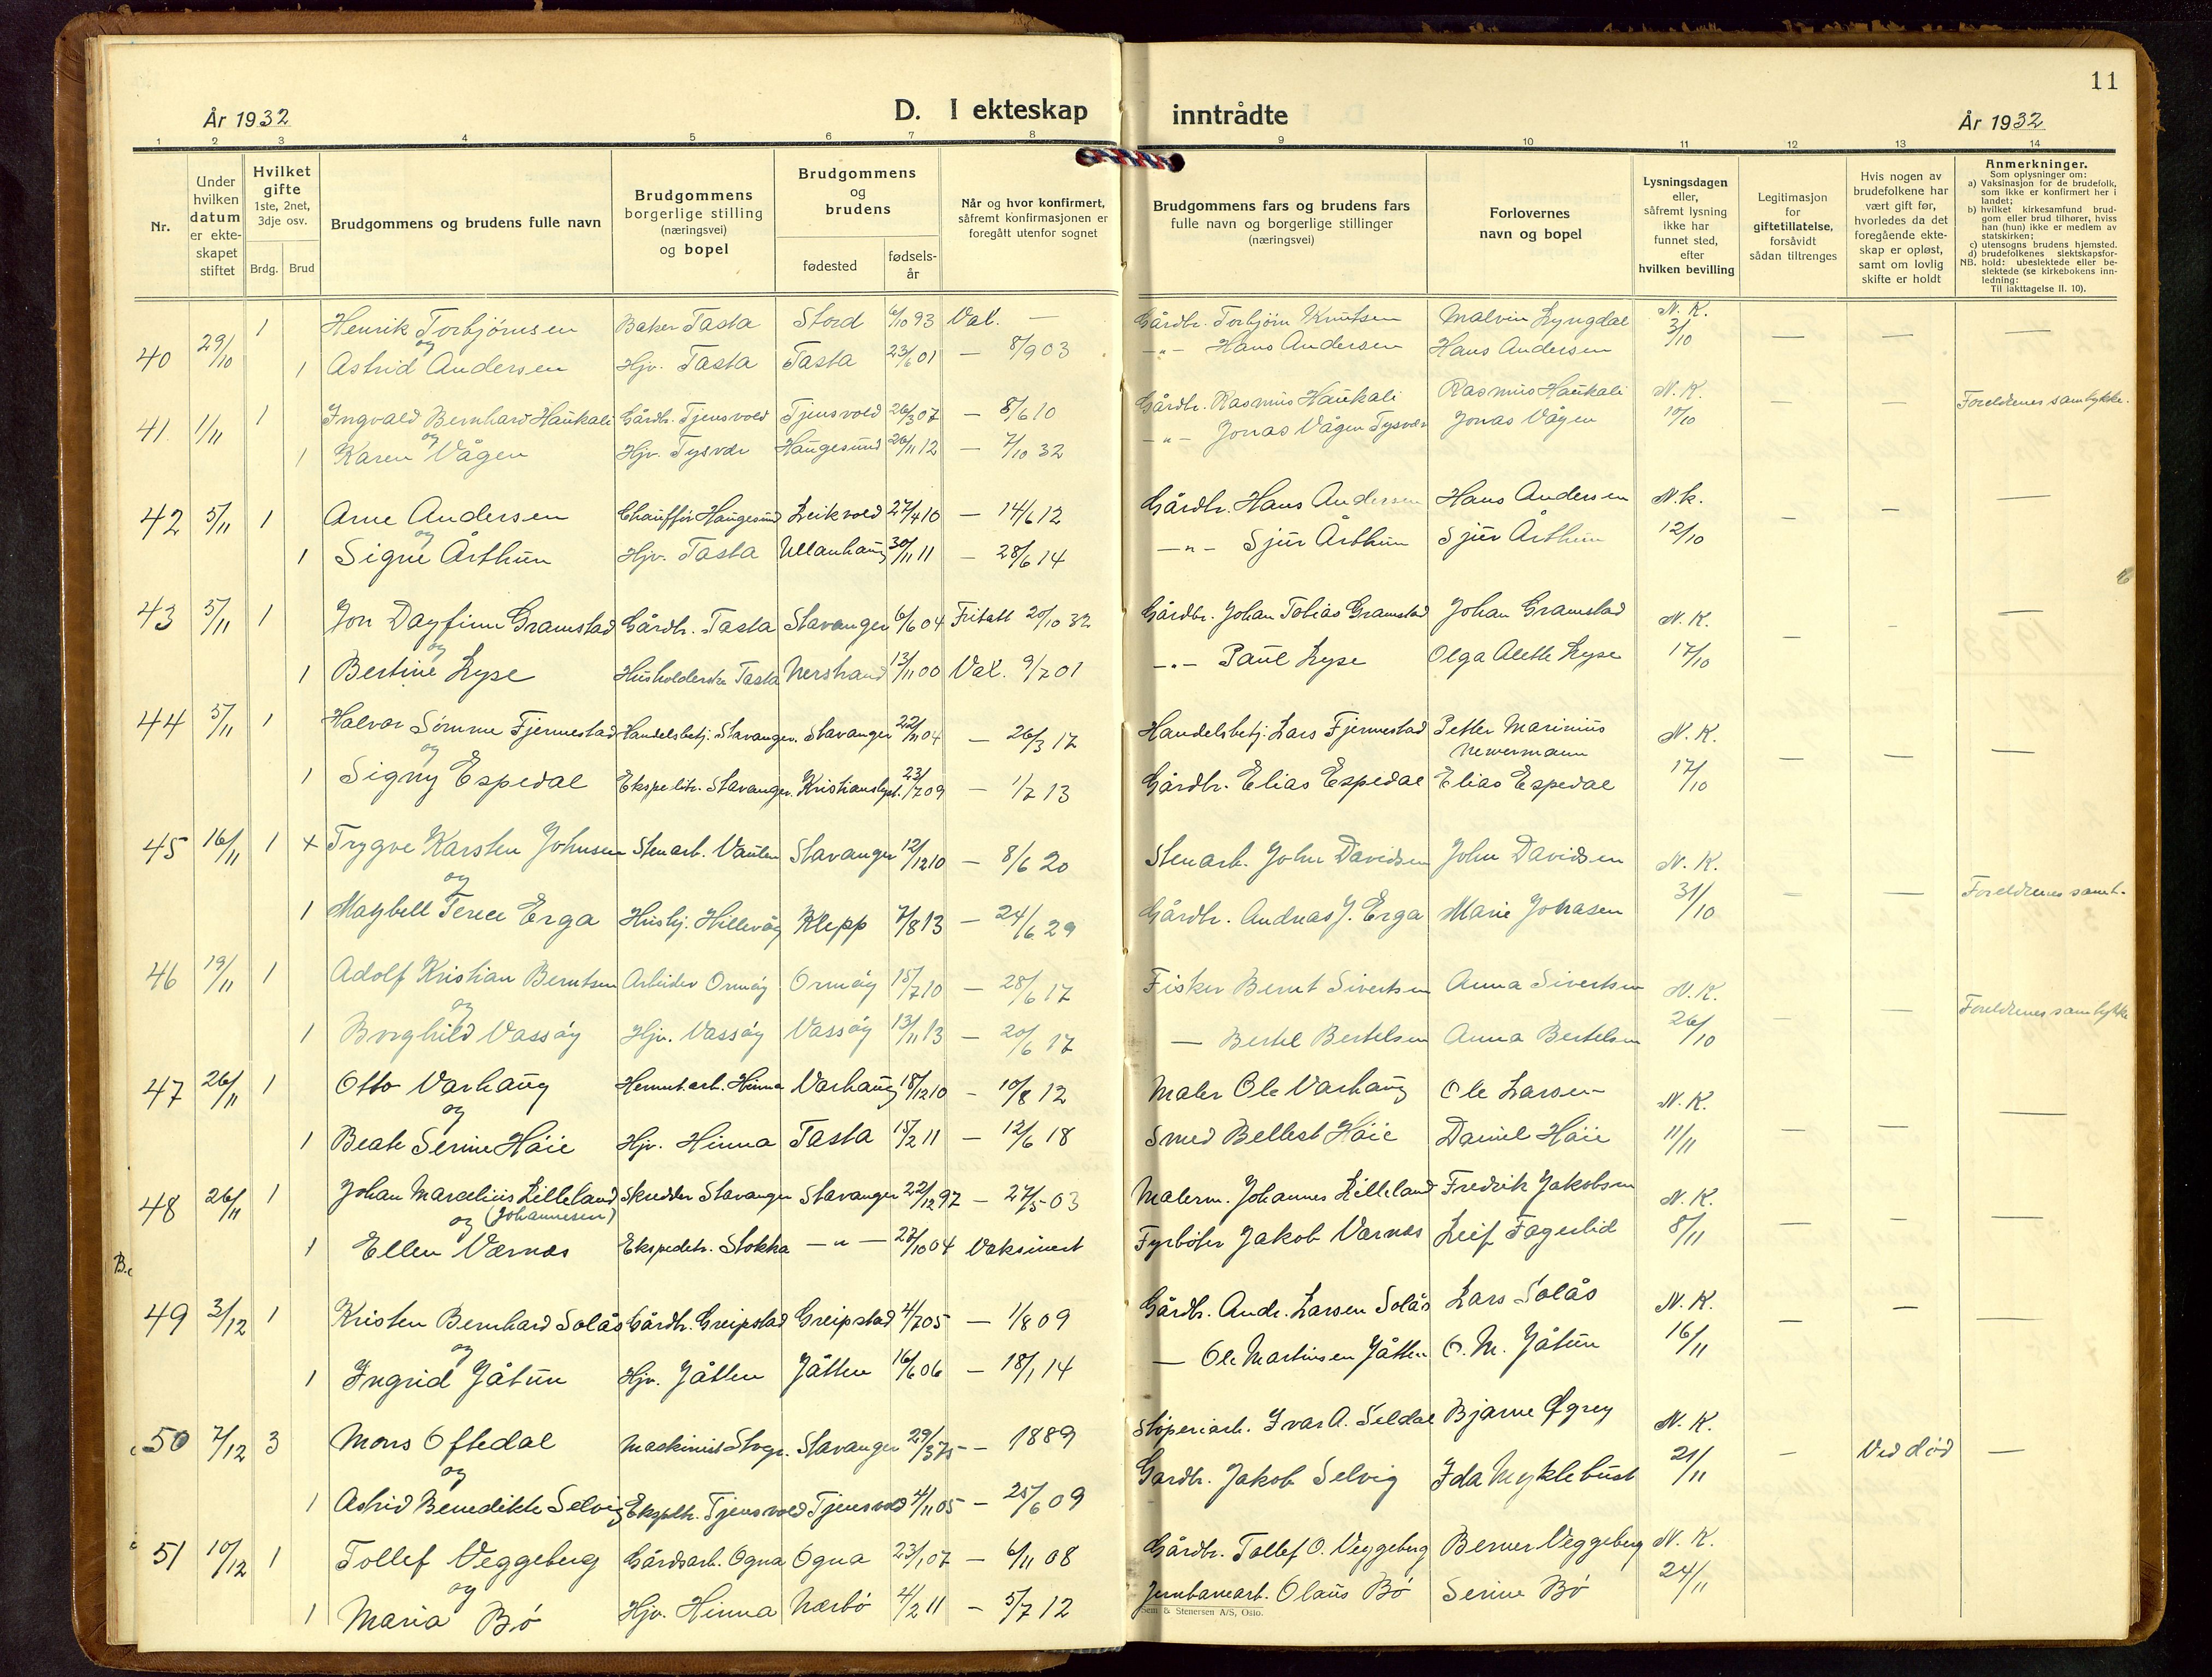 11
År 1932
D. I ekteskap inntrådte
År 1932
1 2 3 4 5 6 7 8 9 10 11 12 13 14
Nr.
Under hvilken datum er ekteskapet stiftet
Hvilket gifte 1ste, 2net, 3dje osv.
Brdg. Brud
Brudgommens og brudens fulle navn
Brudgommens borgerlige stilling (næringsvei) og bopel
Brudgommens og brudens
fødested
fødsels-år
Når og hvor konfirmert, såfremt konfirmasjonen er foregått utenfor sognet
Brudgommens fars og brudens fars fulle navn og borgerlige stillinger (næringsvei)
Forlovernes navn og bopel
Lysningsdagen eller, såfremt lysning ikke har funnet sted, efter hvilken bevilling
Legitimasjon for giftetillatelse, forsåvidt sådan tiltrenges
Hvis nogen av brudefolkene har vært gift før, hvorledes da det foregående ekteskap er opløst, samt om lovlig skifte er holdt
Anmerkninger.
Som oplysninger om:
a) Vaksinasjon for de brudefolk, som ikke er konfirmert her i landet;
b) hvilket kirkesamfund brudgom eller brud tilhører, hviss han (hun) ikke er medlem av statskirken;
c) utensogns brudens hjemsted.
d) brudefolkenes slektskapsforhold: ubeslektede eller beslektede (se kirkebokens innledning:
NB. Til iakttagelse II. 10).
40 29/10 1 Henrik Torbjørnsen Baker Tasta Stord 6/10 93 Val. — Gårdbr. Torbjörn Knutsen Malvin Lyngdal N. K. 3/10 — — —
og
1 Astrid Andersen Hjv. Tasta Tasta 23/6 01 — 8/9 03 -"- Hans Andersen Hans Andersen
41 1/11 1 Ingvald Bernhard Haukali Gårdb. Tjensvold Tjensvold 26/3 07 — 8/6 10 Gårdbr. Rasmus Haukali Rasmus Haukali N. K. 10/10 — — Foreldrenes samtykke.
og
1 Karen Vågen Hjv. Tysvær Haugesund 26/11 12 — 7/10 32 -"- Jonas Vågen Tysvær Jonas Vågen
42 5/11 1 Arne Andersen Chauffør Haugesund Leikvold 27/4 10 — 14/6 12 Gårdbr. Hans Andersen Hans Andersen N. k. 12/10 — — —
og
1 Signe Årthun Hjv. Tasta Ullanhaug 30/11 11 — 28/6 14 -"- Sjur Årthun Sjur Årthun
43 5/11 1 Jon Dagfinn Gramstad Gårdb. Tasta Stavanger 6/6 04 Fritatt 20/10 32 Gårdbr. Johan Tobias Gramstad Johan Gramstad N. K. 17/10 — - —
og
1 Bertine Lyse Husholderske Tasta Nerstrand 13/11 00 Val. 9/7 01 -"- Paul Lyse Olga Alette Lyse
44 5/11 1 Halvor Sømme Fjermestad Handelsbetj. Stavanger. Stavanger 22/11 04 — 26/3 17 Handelsbetj. Lars Fjermestad Petter Marinius Newermann N. K. 17/10 — — —
og
1 Signy Espedal Ekspeditr. Stavanger. Kristianslyst. 23/7 09 — 1/7 13 Gårdbr. Elias Espedal Elias Espedal
45 16/11 1 + Trygve Karsten Johnsen Stenarb. Vaulen Stavanger 12/12 10 — 8/6 20 Stenarb. John Davidsen John Davidsen N. K. 31/10 — — Foreldrenes samt.
og
1 Maybell Terese Erga Hushj. Hillevåg Klepp 7/8 13 — 24/6 29 Gårdbr. Andreas J. Erga Marie Johnsen
46 19/11 1 Adolf Kristian Berntsen Arbeider Ormøy Ormøy 15/7 10 — 28/6 17 Fisker Bernt Sivertsen Anna Sivertsen N. K. 26/10 — — Foreldrenes samtykke
og
1 Borghild Vassøy Hjv. Vassøy Vassøy 13/11 13 — 20/6 17 — Bertel Bertelsen Anna Bertelsen
47 26/11 1 Otto Varhaug Hermet.arb. Hinna Varhaug 18/12 10 — 10/8 12 Maler Ole Varhaug Ole Larsen N. K. 11/11 — — —
og
1 Beate Serine Høie Hjv. Hinna Tasta 15/2 11 — 12/6 18 Smed Bellest Høie Daniel Høie
48 26/11 1 Johan Marcelius Lilleland Skredder Stavanger Stavanger 22/12 97 — 27/5 03 Malerm. Johannes Lilleland Fredrik Jakobsen N. K. 8/11 — — —
og (Johannesen)
1 Ellen Værnes Ekspedetr. Stokka — " — 27/10 04 Vaksinert Fyrbøter Jakob Varnes Leif Fagerlid
49 3/12 1 Kristen Bernhard Solås Gårdb. Greipstad Greipstad 4/7 05 — 1/8 09 Gårdbr. Andr. Larsen Solås Lars Solås N. K. 16/11 — — —
og
1 Ingrid Jåtun Hjv. Jåtten Jåtten 16/6 06 — 18/1 14 — Ole Martinsen Jåtten O. M. Jåtun
50 7/12 3 Mons Oftedal Maskinist Stvgr. Stavanger 29/3 75 — 1889 Støperiarb. Ivar A. Seldal Bjarne Øgrey N. K. 21/11 — Ved død —
og
1 Astrid Benedikte Selvig Ekspdtr. Tjensvold Tjensvold 4/11 05 — 25/6 09 Gårdbr. Jakob Selvig Ida Myklebust
51 10/12 1 Tollef Veggeberg Gårdsarb. Ogna Ogna 23/1 07 — 6/11 08 Gårdbr. Tollef O. Veggeberg Berner Veggeberg N. K. 24/11
og
1 Maria Bø Hjv. Hinna Nærbø 4/2 11 — 5/7 12 Jernbanearb. Olaus Bø Serine Bø
Sem & Stenersen A/S, Oslo.